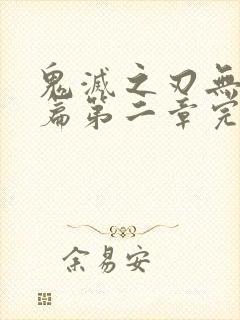 鬼滅之刃無
篇第二章完
余易安